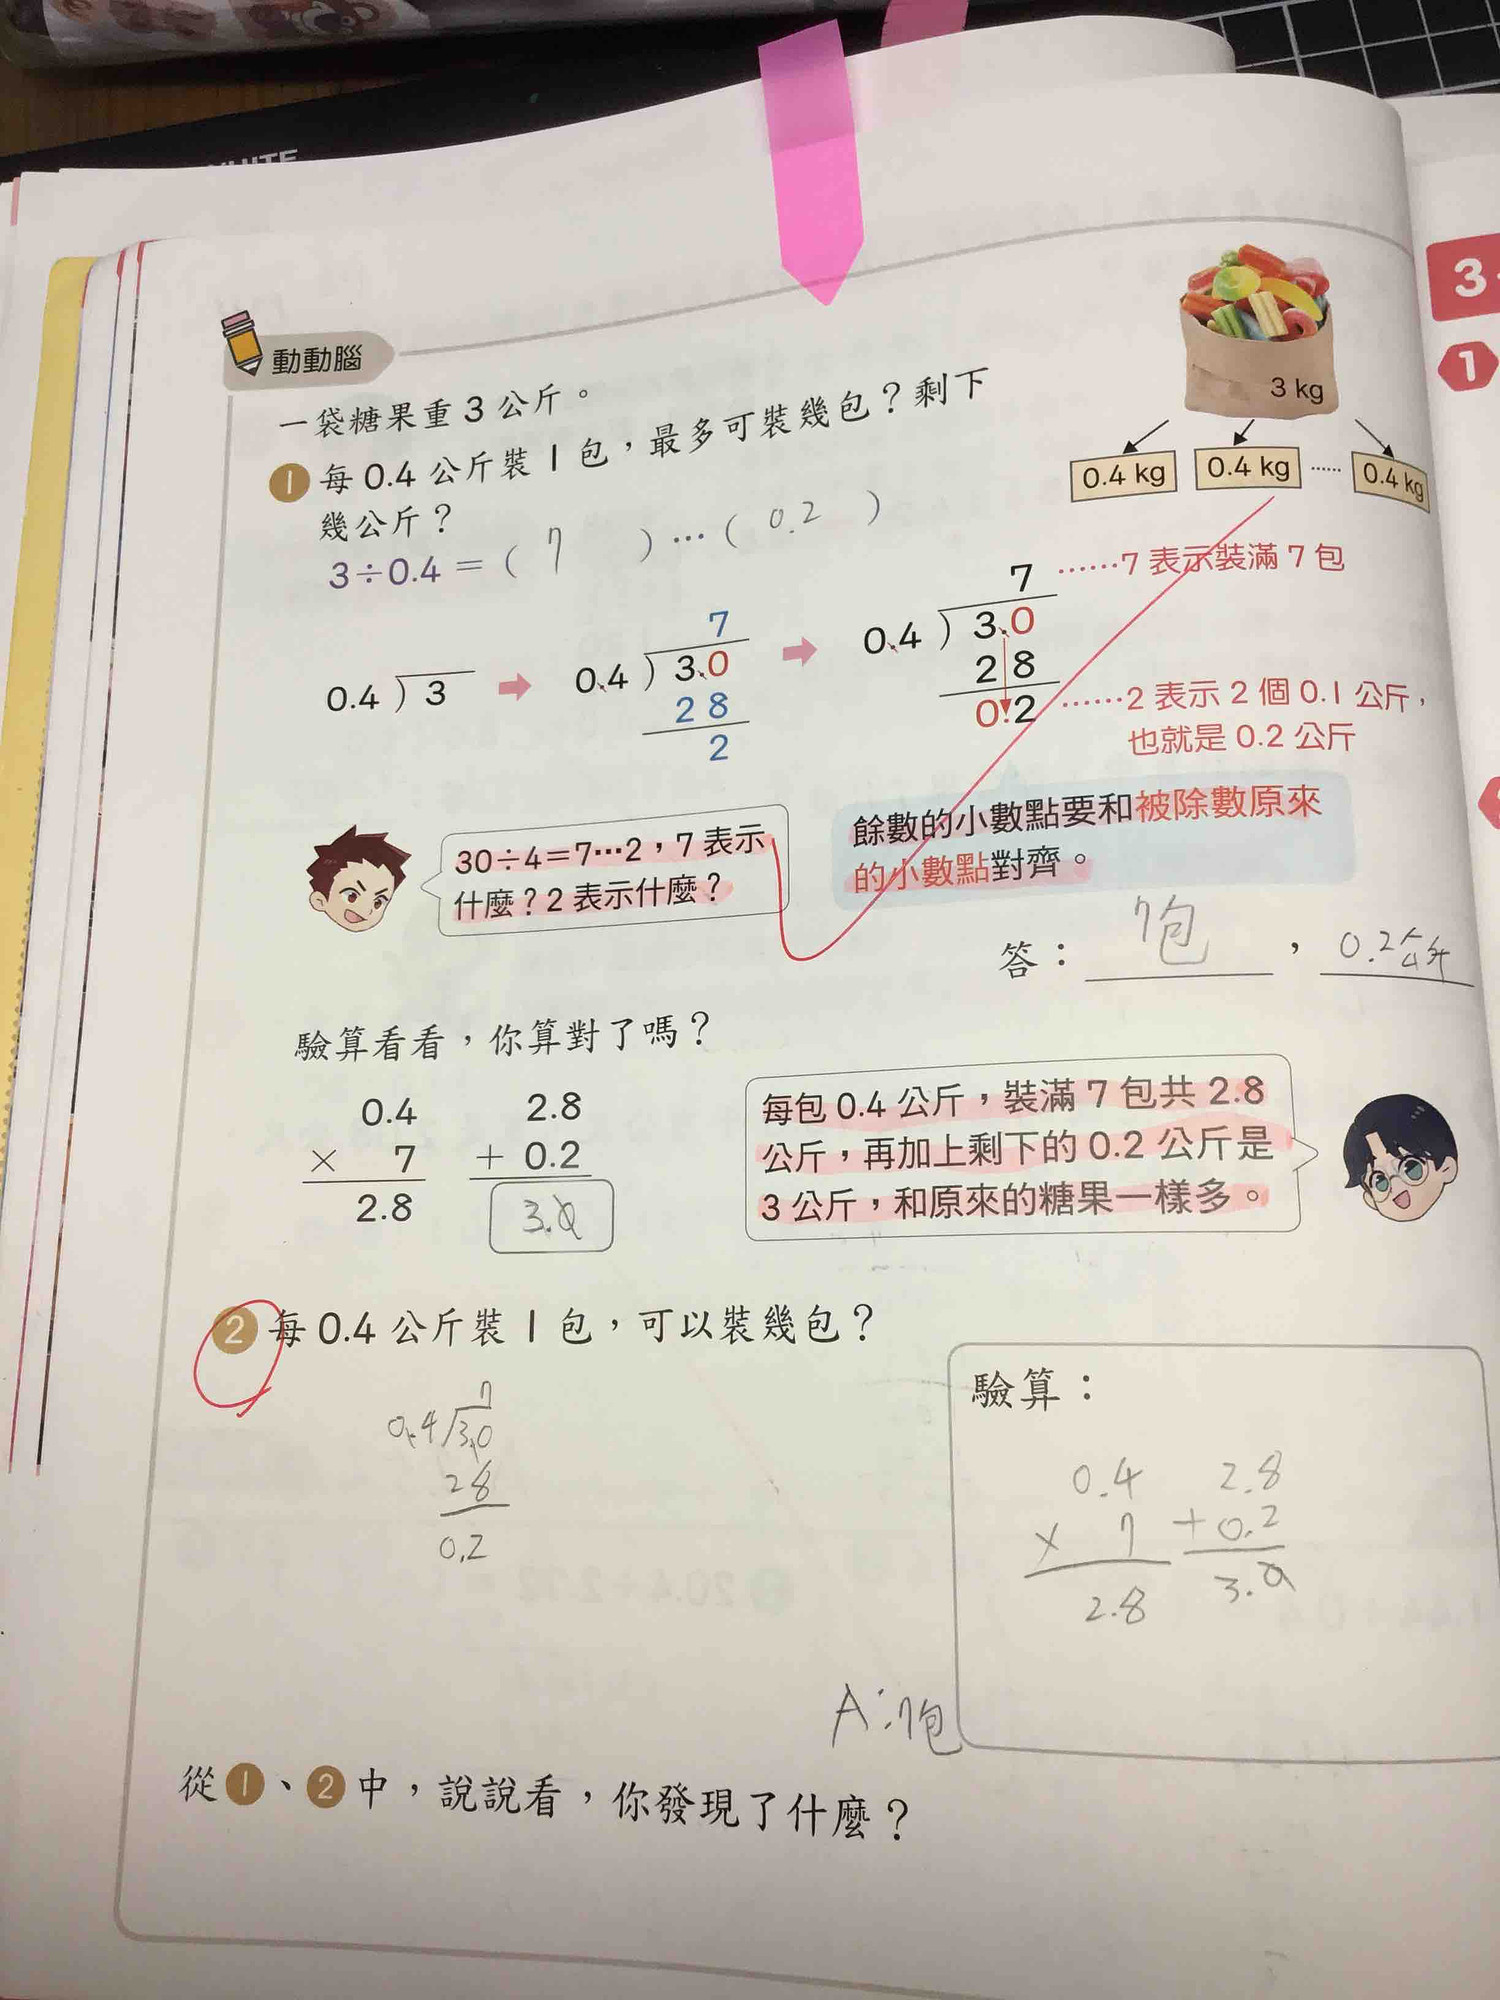 WHITE
動動腦
3
1
一袋糖果重3公斤。
3 kg
0.4 kg 0.4 kg …… 0.4 kg
1 每0.4公斤裝1包，最多可裝幾包？剩下
幾公斤？
3÷0.4＝( 7 )…( 0.2 )
0.4 ) 3
7
0.4 ) 3.0
28
2
7 ……7表示裝滿7包
0.4 ) 3.0
28
0.2 ……2表示2個0.1公斤，
也就是0.2公斤
30÷4＝7…2，7表示
什麼？2表示什麼？
餘數的小數點要和被除數原來
的小數點對齊。
答：7包，0.2公斤
驗算看看，你算對了嗎？
0.4
× 7
2.8
2.8
+ 0.2
3.0
每包0.4公斤，裝滿7包共2.8
公斤，再加上剩下的0.2公斤是
3公斤，和原來的糖果一樣多。
2 每0.4公斤裝1包，可以裝幾包？
7
0.4 ) 3.0
28
0.2
驗算：
0.4
× 7
2.8
2.8
+0.2
3.0
A:7包
從1、2中，說說看，你發現了什麼？